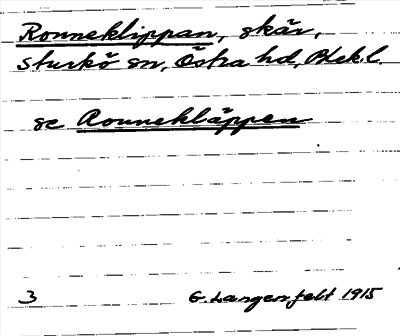 Ronneklippan, skär,
Sturkö sn, Östra hd, Blek.l.
se Aronnekläppen
3 G. Langenfelt 1915